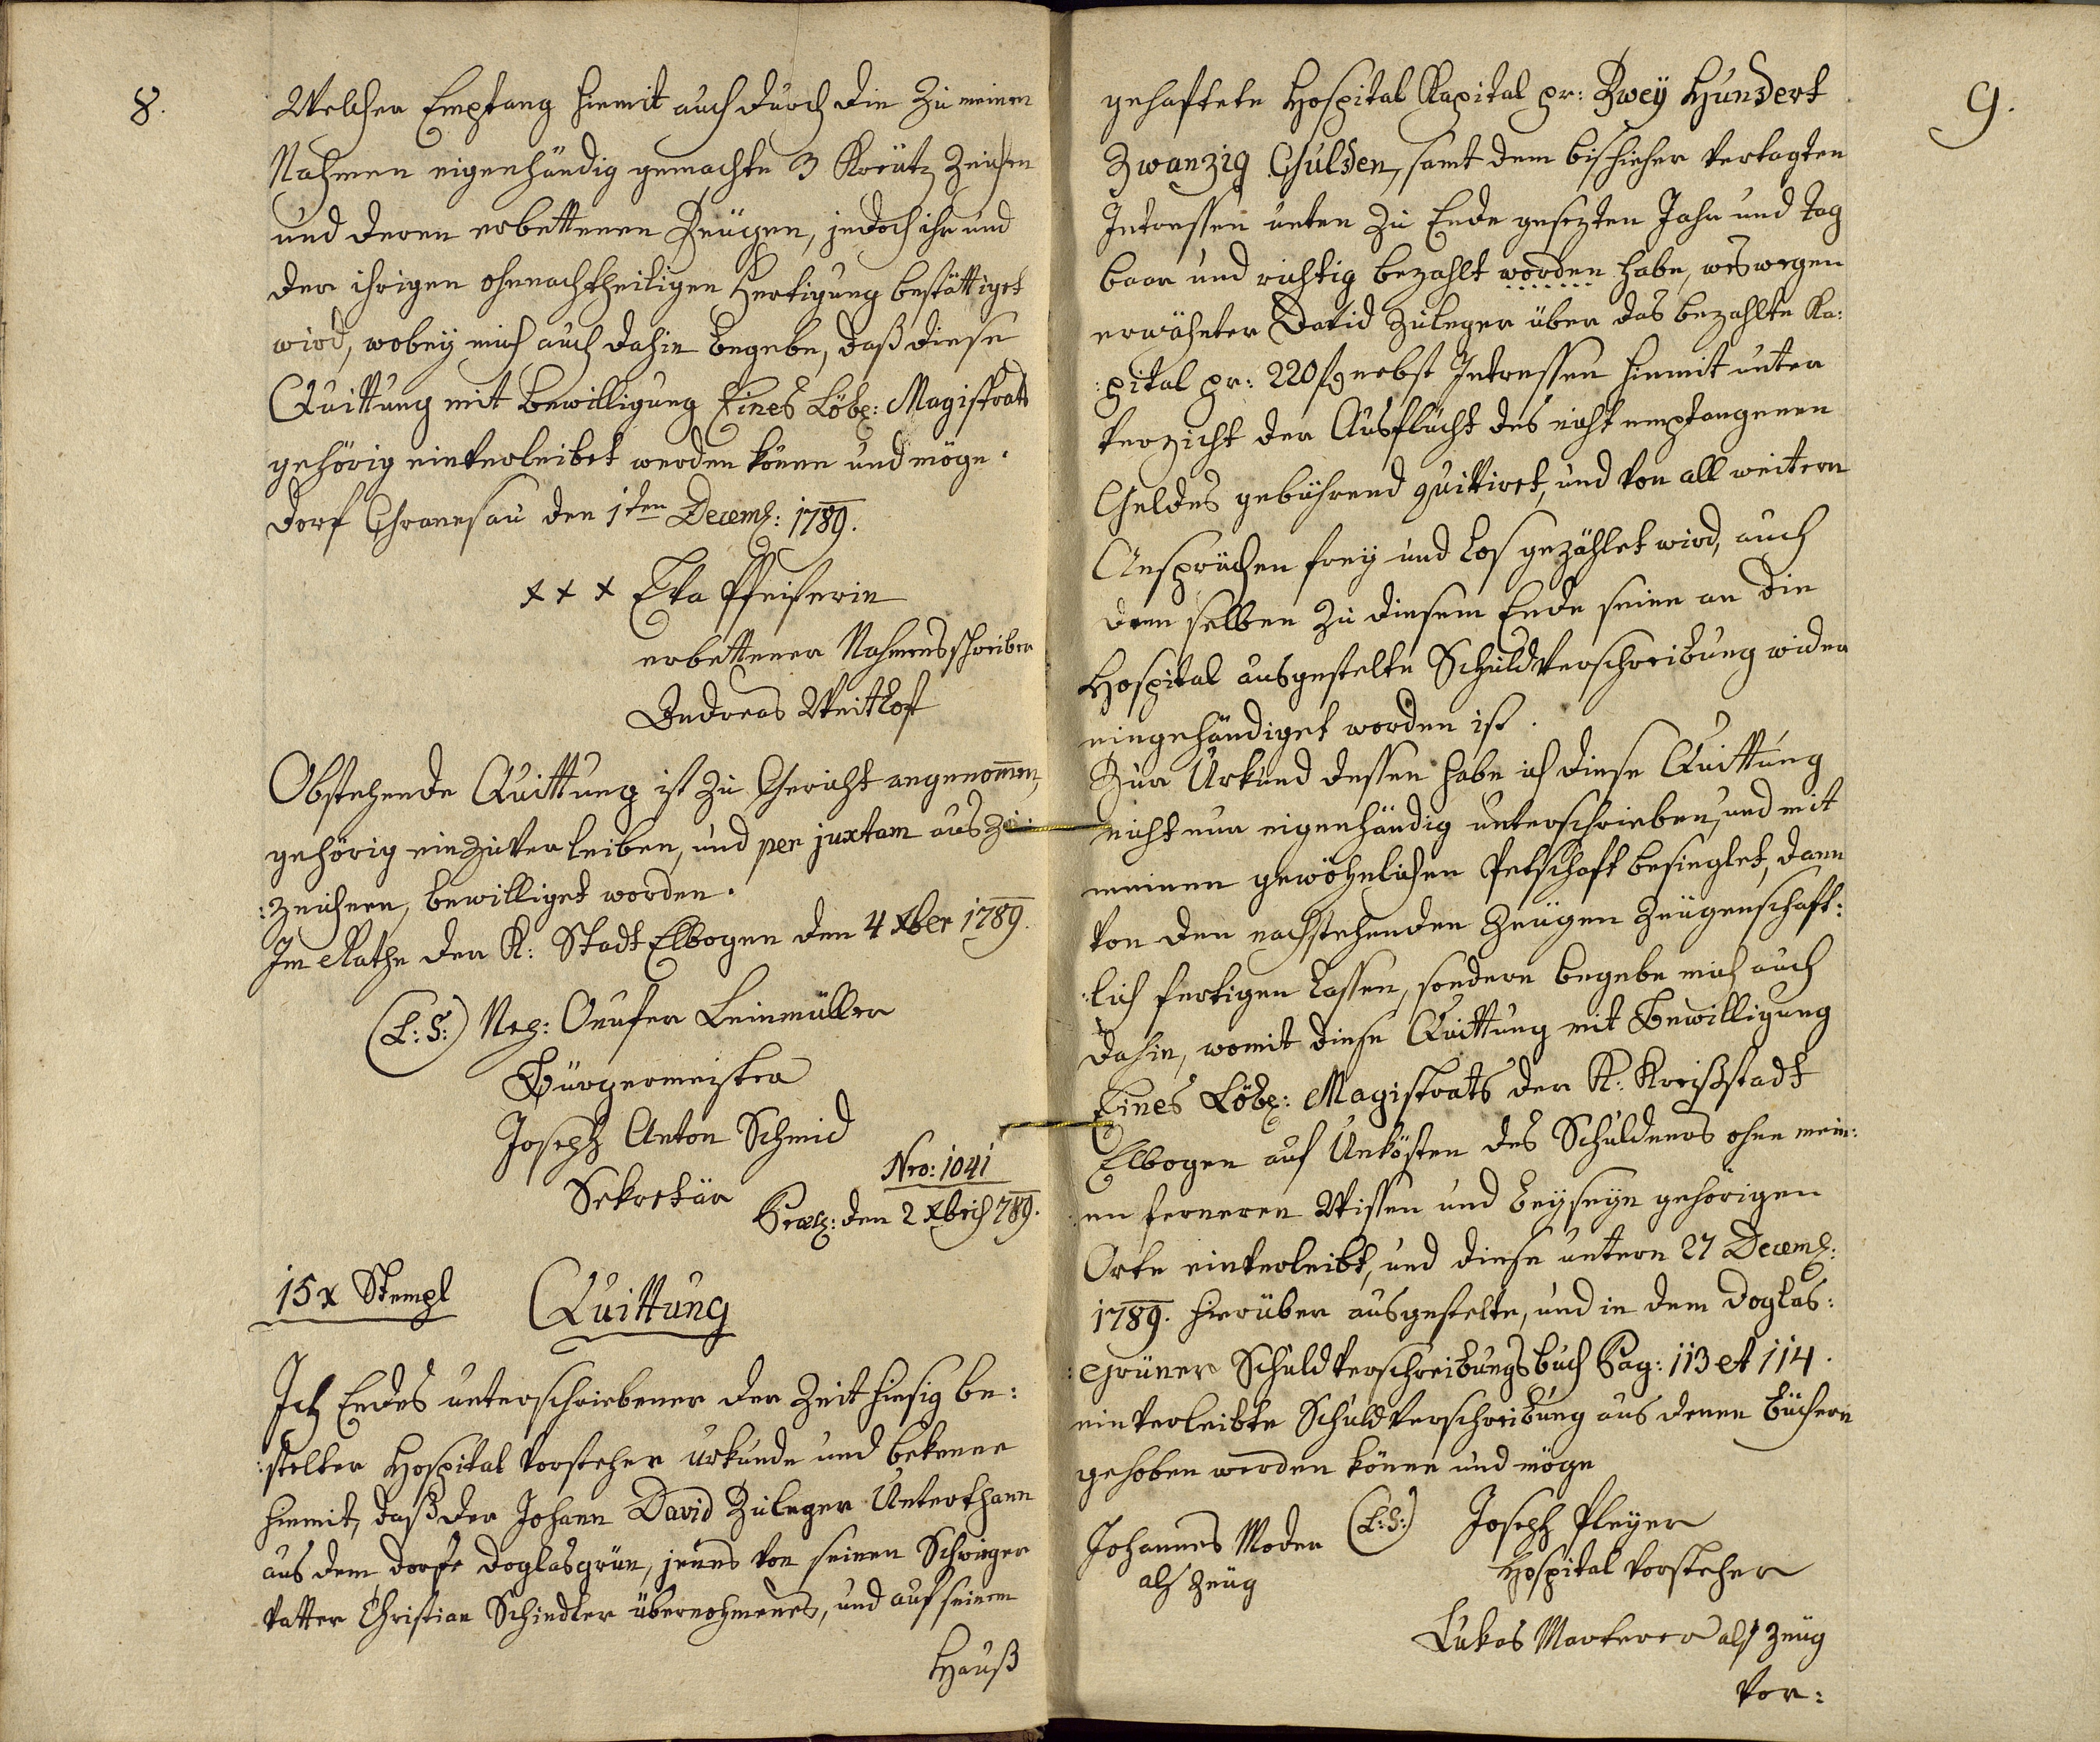 8.
Welcher Empfang hiemit auch durch die zu meinem
Nahmen eigenhändig gemachte 3 Kreütz Zeichen
und deren erbettenen Zeügen, jedoch ihr und
der ihrigen ohnnachtheiligen Fertigung bestättiget
wird, wobey mich auch dahin begebe, daß diese
Quittung mit Bewilligung Eines Löbl: Magistrats
gehörig einverleibet werden könne und möge.
Dorf Granesau den 1ten Decemb: 1789.
x x x Eva Pfeiferin
erbettener Nahmensschreiber
Andreas Weithoft
Obstehende Quittung ist zu Gericht angenom̄en,
gehörig einzuverleiben, und per juxtam auszu:
:zeichnen, bewilliget worden.
Im Rathe der K: Stadt Elbogen den 4 Xber 1789.
(L:S:) Onufer Leinmüller
Bürgermeister
Joseph Anton Schmid
Sekretär
Nro: 1041
den 2 Xbris 789.
15 x Stempl
Quittung
Ich Endes unterschriebener der Zeit hiesig be:
:stelter Hospital Vorsteher urkunde und bekenne
hiemit, daß der Johann David Zuleger Unterthann
aus dem Dorfe Doglasgrün, jenes von seinen Schwieger
Vatter Christian Schindler übernohmenes, und auf seinem
Hauß
9.
gehaftete Hospital Kapital pr: Zwey Hundert
Zwanzig Gulden, samt dem bishieher vertagten
Intressen unten zu Ende gesezten Jahr und Tag
baar und richtig bezahlt worden habe, weswegen
erwähnter David Zuleger über das bezahlte Ka:
:pital pr: 220 f nebst Intressen hiemit unter
Verzicht der Ausflucht des nicht empfangenen
Geldes gebührend quittiret, und von all weitern
Ansprüchen frey und los gezählet wird, auch
dem selben zu diesem Ende seine an die
Hospital ausgestelte Schuldverschreibung wider
eingehändiget worden ist.
Zur Urkund dessen habe ich diese Quittung
nicht nur eigenhändig unterschrieben, und mit
meinem gewöhnlichen Petschaft besieglet, dann
von den nachstehenden Zeügen Zeügenschaft:
:lich fertigen lassen, sondern begebe mich auch
dahin, womit diese Quittung mit Bewilligung
Eines Löbl: Magistrats der K: Kreißstadt
Elbogen auf Unkösten des Schuldners ohne mein:
:en ferneren Wissen und beyseyn gehörigen
Orte einverleibt, und diese untern 27 Decemb:
1789. hierüber ausgestelte, und in dem Doglas:
:grüner Schuldverschreibungsbuch Pag: 113 et 114.
einverleibte Schuldverschreibung aus denen Büchern
gehoben werden könne und möge
Johannes Moder (L:S:) Joseph Pleyer
als Zeüg Hospital Vorsteher
Lukas als Zeüg
Vor: